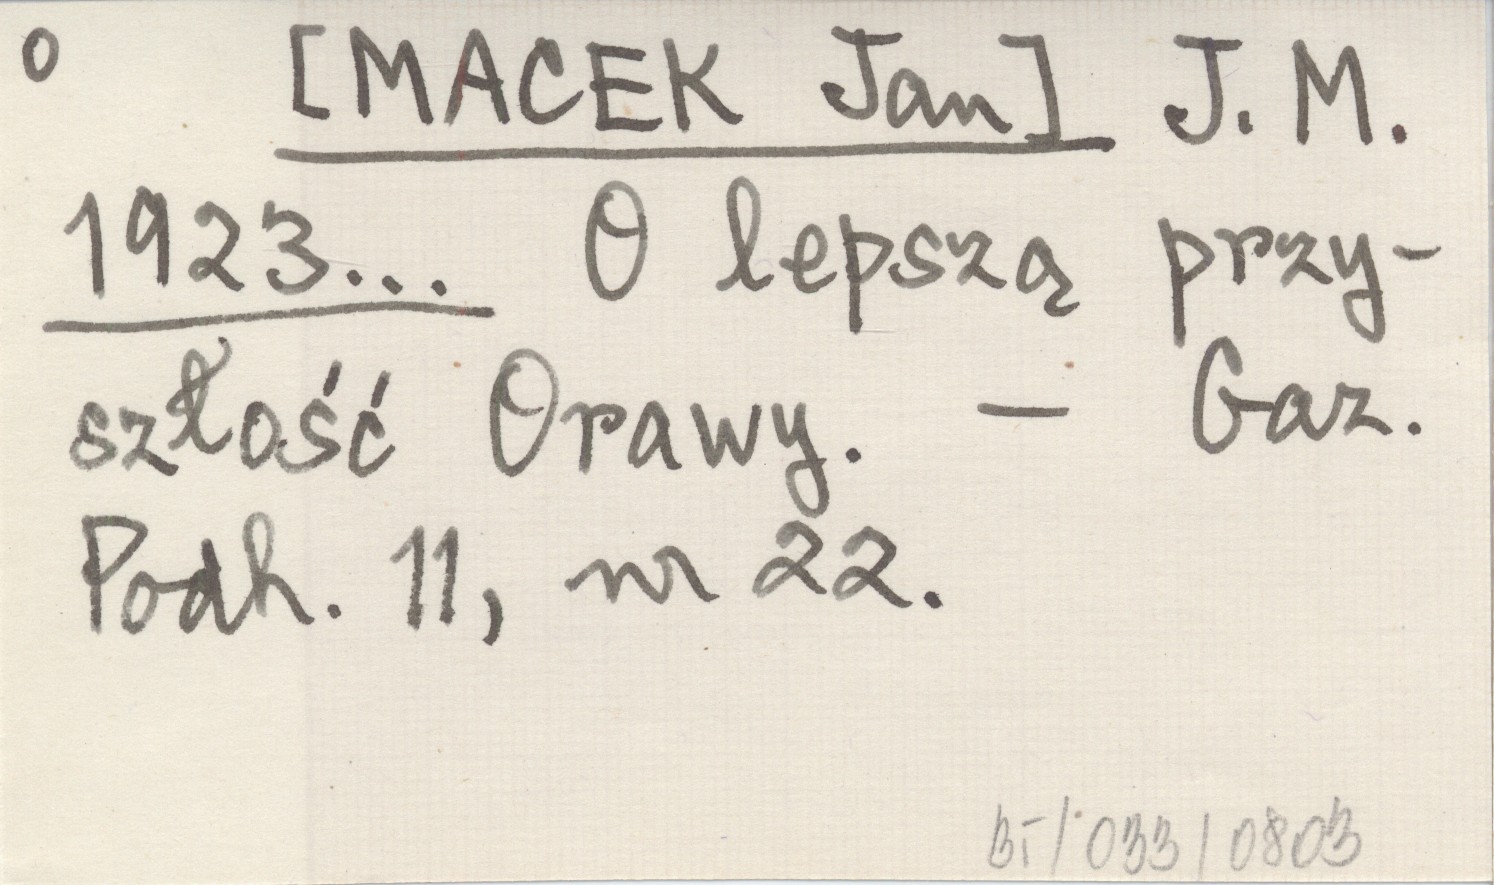 o [MACEK Jan] J. M.
1923... O lepszą przy-
szłość Orawy. — Gaz.
Podh. 11, nr 22.
BT/033/0803